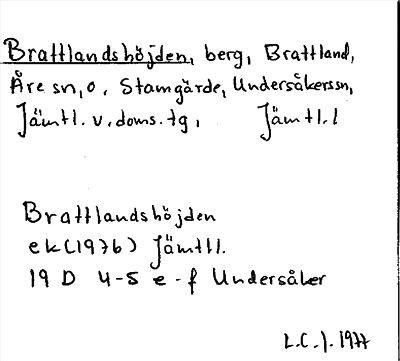 Brattlandshöjden, berg, Brattland,
Åre sn, o. Stamgärde, Undersåkerssn,
Jämtl. v. doms. tg, Jämtl. l
Brattlandshöjden
ek (1976) Jämtll.
19 D 4-5 e-f Undersåker
L.C.J. 1977